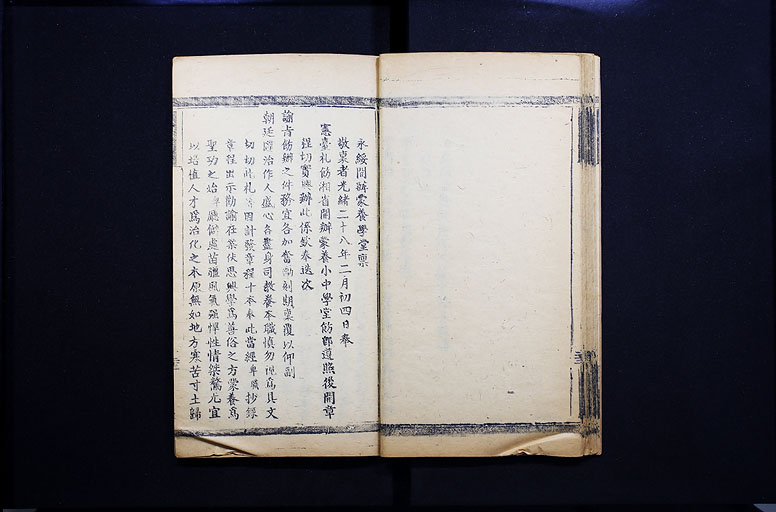 永綏開辦蒙養學堂稟
敬稟者光緒二十八年二月初四日奉
憲臺札飭湘省開辦蒙養小中學堂飭即遵照後開章
程切實興辦此係欽奉迭次
諭旨飭辦之件務宜各加奮勉刻期稟覆以仰副
朝廷隆治作人盛心各盡身司教養本職慎勿視爲具文
切切此札等因計發章程十本奉此當經卑廳抄錄
章程出示勸諭在案伏思興學爲善俗之方蒙養爲
聖功之始卑廳僻處苗疆風氣强悍性情桀驁尤宜
以培植人才爲治化之本原無如地方寒苦寸土歸